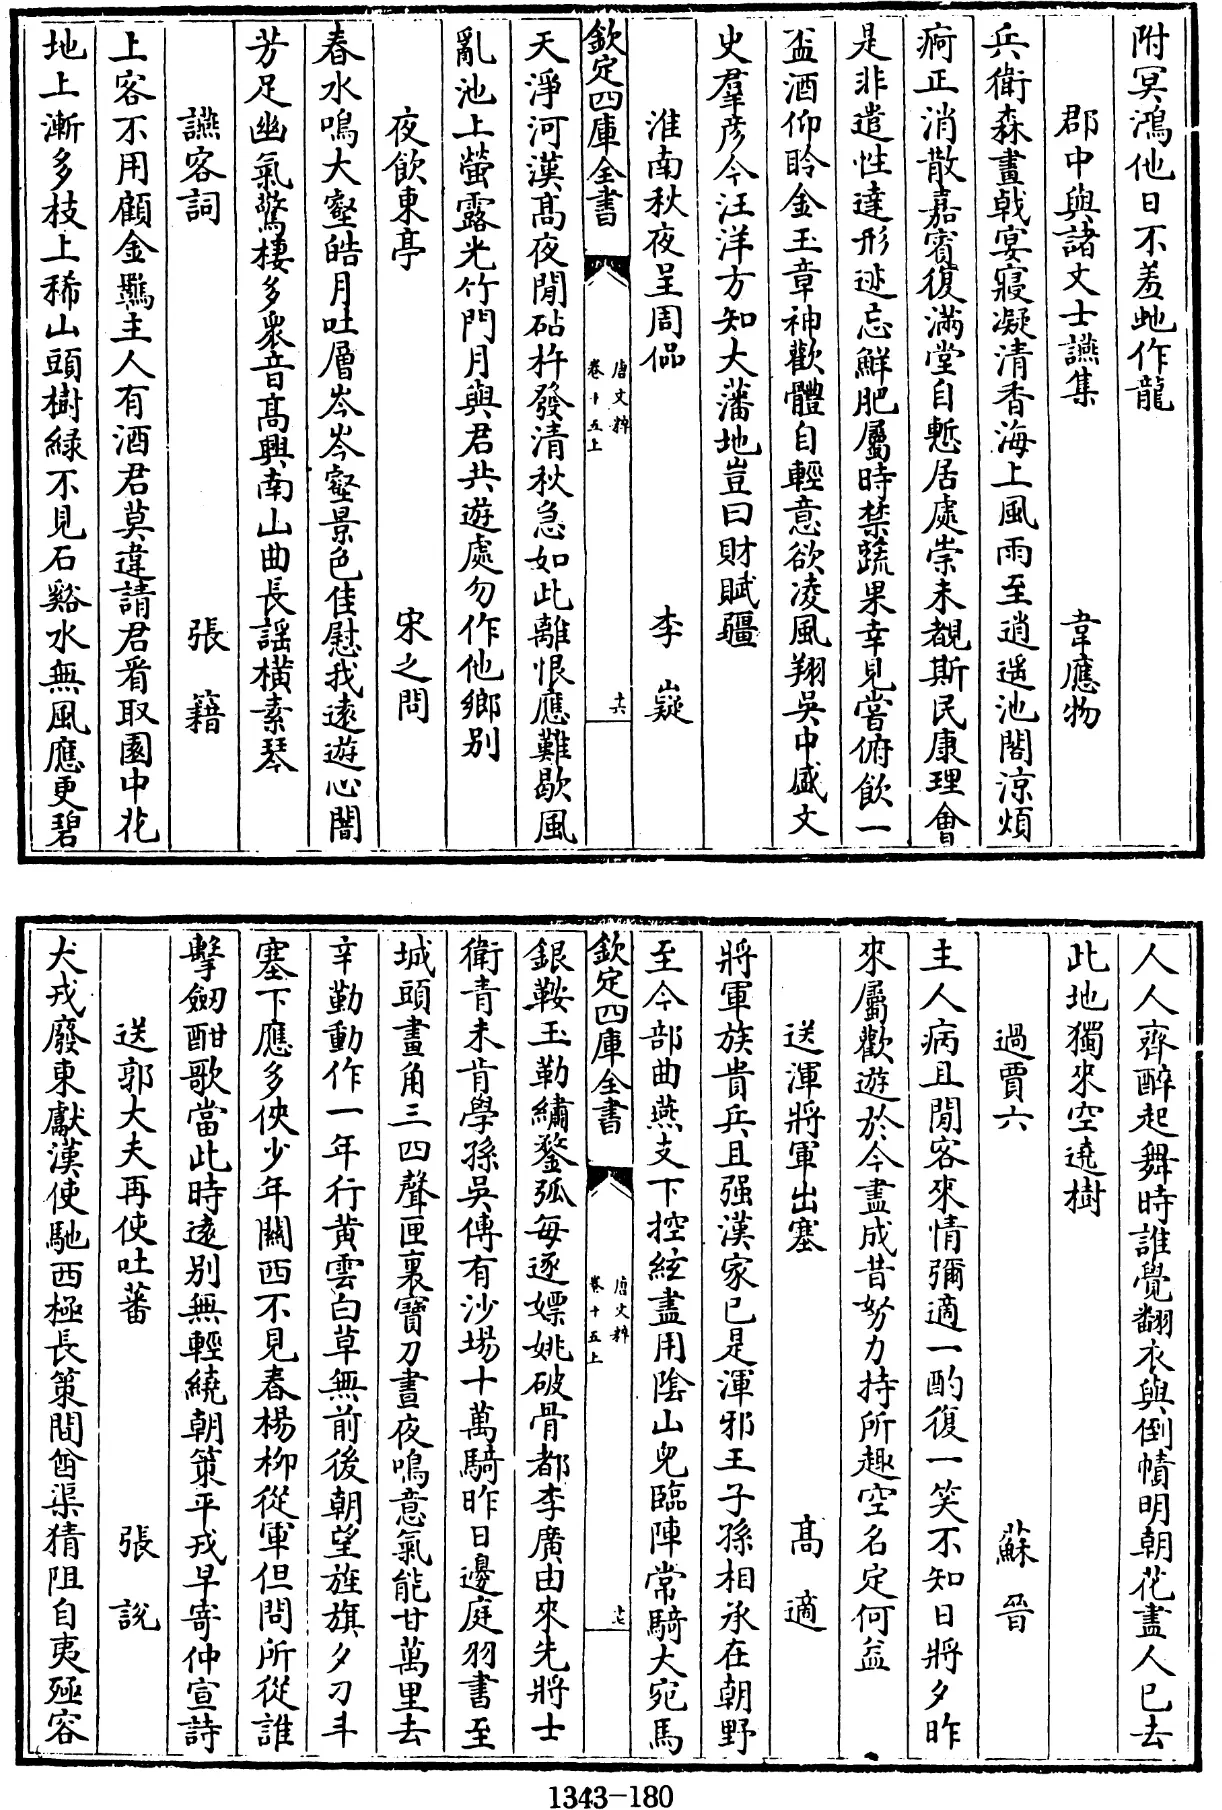 附冥鴻他日不羞虵作龍
郡中與諸文士讌集 韋應物
兵衛森畫戟宴寢凝清香海上風雨至逍遥池閣涼煩
疴正消散嘉賓復滿堂自慙居處崇未覩斯民康理會
是非遣性達形迹忘鮮肥屬時禁蔬果幸見嘗俯飲一
盃酒仰聆金玉章神歡體自輕意欲凌風翔吳中盛文
史羣彦今汪洋方知大藩地豈曰財賦疆
淮南秋夜呈周侃 李嶷
天淨河漢髙夜閒砧杵發清秋急如此離恨應難歇風
亂池上螢露光竹門月與君共遊處勿作他鄉别
夜飲東亭 宋之問
春水鳴大壑皓月吐層岑岑壑景色佳慰我遠遊心闇
芳足幽氣驚棲多衆音髙興南山曲長謡横素琴
讌客詞 張籍
上客不用顧金羈主人有酒君莫違請君看取園中花
地上漸多枝上稀山頭樹緑不見石谿水無風應更碧
欽定四庫全書
唐文粹
卷十五上
十六
人人齊醉起舞時誰覺翻衣與倒幘明朝花盡人已去
此地獨來空遶樹
過賈六 蘇晉
主人病且閒客來情彌適一酌復一笑不知日將夕昨
來屬歡遊於今盡成昔努力持所趣空名定何益
送渾將軍出塞 髙適
將軍族貴兵且强漢家已是渾邪王子孫相承在朝野
至今部曲燕支下控絃盡用陰山兒臨陣常騎大宛馬
銀鞍玉勒繡蝥弧每逐嫖姚破骨都李廣由來先將士
衛青未肯學孫吳傳有沙場十萬騎昨日邊庭羽書至
城頭畫角三四聲匣裏寶刀晝夜鳴意氣能甘萬里去
辛勤動作一年行黄雲白草無前後朝望旌旗夕刁斗
塞下應多俠少年關西不見春楊柳從軍但問所從誰
擊劒酣歌當此時遠别無輕繞朝策平戎早寄仲宣詩
送郭大夫再使吐蕃 張説
犬戎廢東獻漢使馳西極長策問酋渠猜阻自夷殛容
欽定四庫全書
唐文粹
卷十五上
十七
1343-180